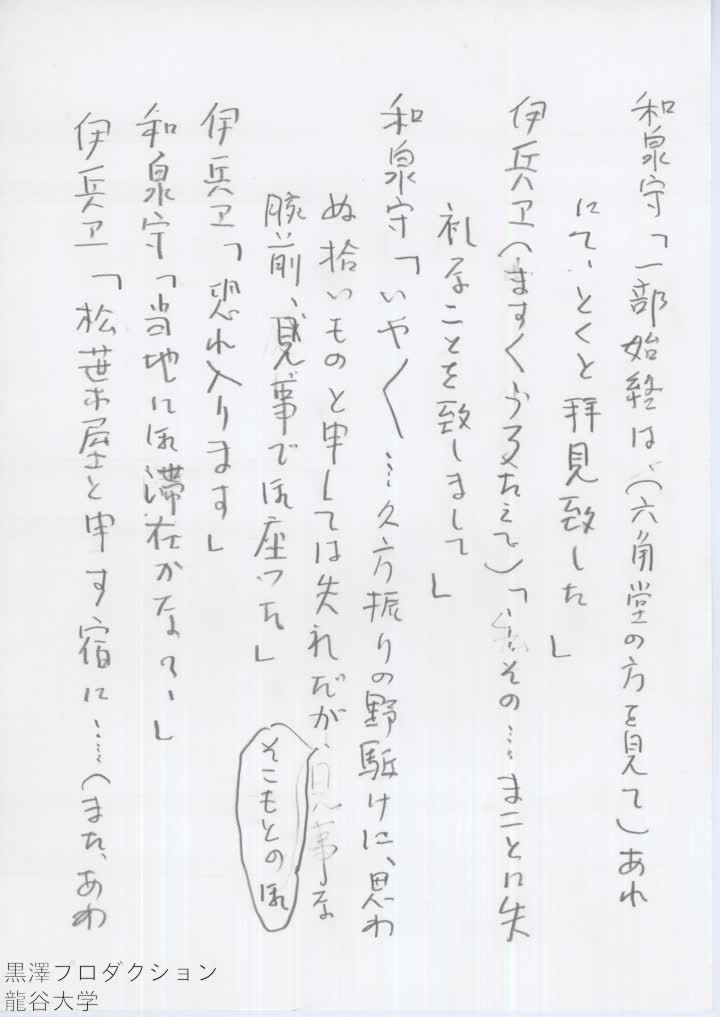 和泉守「一部始終は、（六角堂の方を見て）あれ
にて、とくと拝見致した」
伊兵ヱ（ますくうろたえて）「その…まことに失
礼なことを致しまして」
和泉守「いや〱…久方振りの野駈けに、思わ
ぬ拾いものと申しては失礼だが、見事な
そこもとの御
腕前、見事で御座った」
伊兵ヱ「恐れ入ります」
和泉守「当地に御滞在かな？」
伊兵ヱ「松葉屋と申す宿に…（また、あわ
黒澤プロダクション
龍谷大学